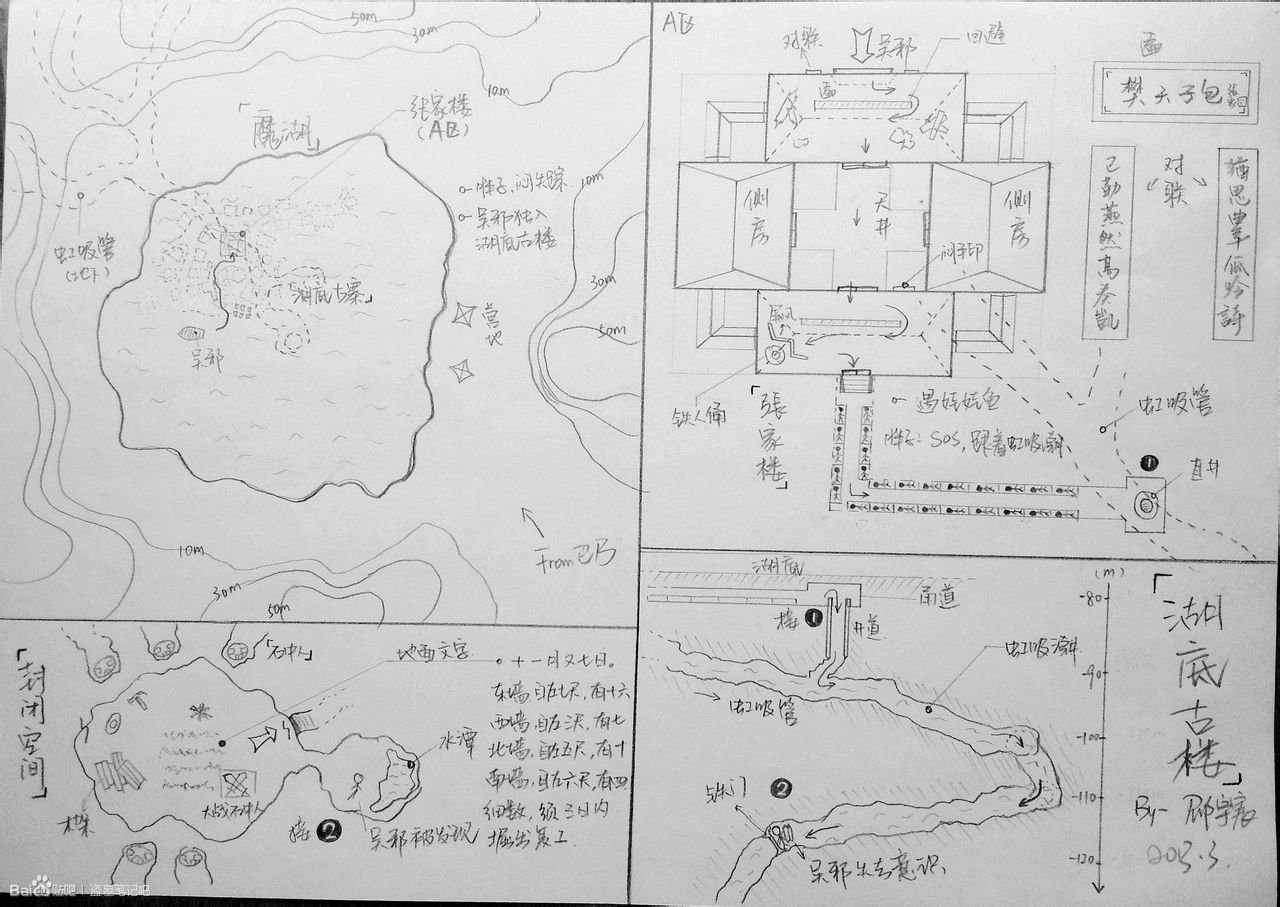 50m
30m
10m
「魔湖」
张家楼
(A区)
胖子,闷失踪
吴邪独入
湖底古楼
10m
30m
50m
虹吸管
(地下)
「湖底古寨」
吴邪
营地
10m
30m
50m
From 巴乃
A区
对联
吴邪
回避
匾
匾
樊天子包
张家
侧房
天井
侧房
闷手印
屏风
铁人俑
「張家楼」
遇姥姥色
胖子: SOS,跟着虹吸潮
对联
已勤燕然高奏凯
犹思曲阜低吟詩
虹吸管
❶
直井
「封闭空间」
「石中人」
地面文字
十一月又七日。
东墙,自左七尺,有十六
西墙,自左三尺,有七
北墙,自左五尺,有十
南墙,自左六尺,有四
细数,须三日内
掘出莫工.
水潭
大战石中人
接❷
吴邪被发现
湖底
甬道
接❶
井道
虹吸潮
虹吸管
铁门
❷
吴邪失去意识
(m)
-80
-90
-100
-110
-120
「湖底古楼」
By-
2013.3.
Bai 贴吧 | 盗墓笔记吧